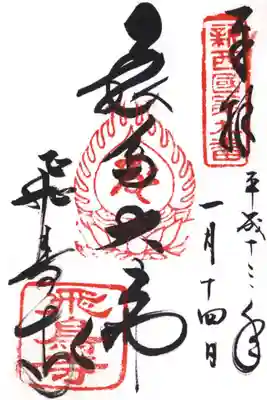 奉拝
新西國第九番
平成十三年
一月十四日
飛鳥寺
飛鳥寺